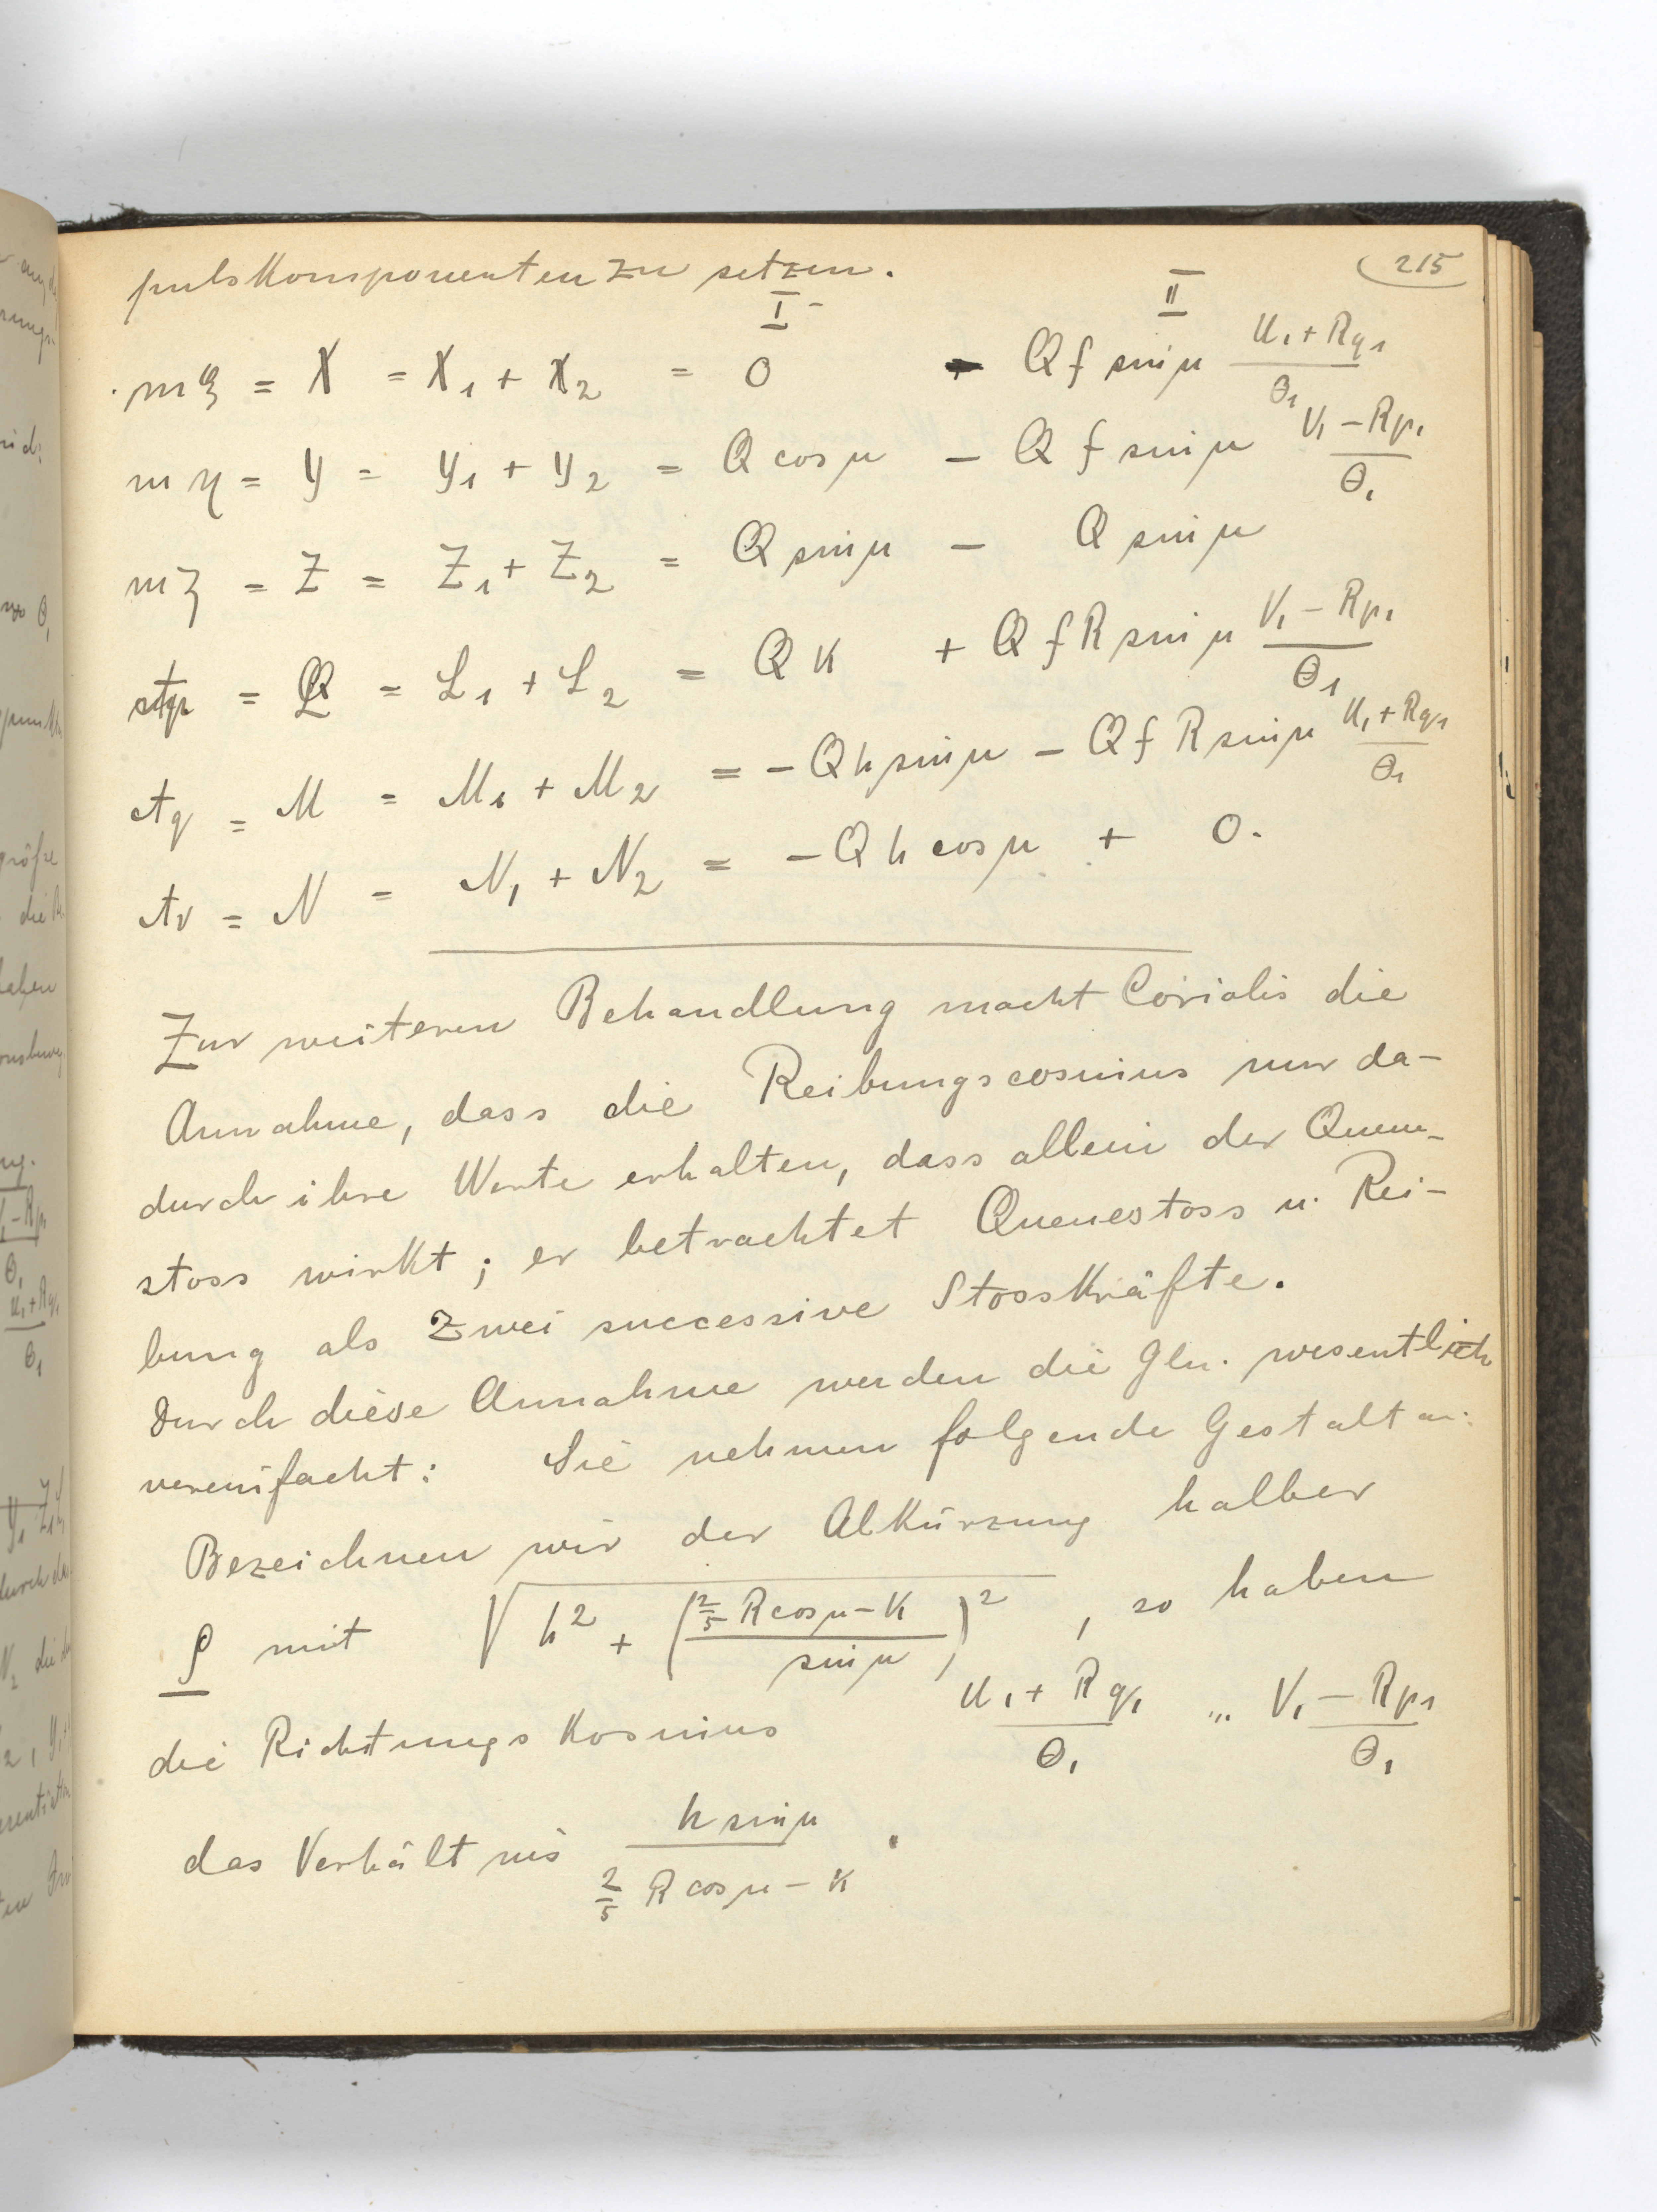 215
pulskomponenten zu setzen.
I II
mξ = X = X₁ + X₂ = 0 - Q f sin μ (u₁ + Rq₁)/Θ₁
mη = Y = Y₁ + Y₂ = Q cos μ - Q f sin μ (V₁ - Rp₁)/Θ₁
mζ = Z = Z₁ + Z₂ = Q sin μ - Q sin μ
Ap = L = L₁ + L₂ = Q k + Q f R sin μ (V₁ - Rp₁)/Θ₁
Aq = M = M₁ + M₂ = - Q h sin μ - Q f R sin μ (u₁ + Rq₁)/Θ₁
Ar = N = N₁ + N₂ = - Q h cos μ + 0.
Zur weiteren Behandlung macht Coriolis die
Annahme, dass die Reibungscosinius nur da-
durch ihre Werte erhalten, dass allein der Queue-
stoss wirkt; er betrachtet Queuestoss u. Rei-
bung als zwei successive Stosskräfte.
Durch diese Annahme werden die Gln. wesentlich
vereinfacht: Sie nehmen folgende Gestalt an:
Bezeichnen wir der Abkürzung halber
ρ mit √(h² + ((2/5 R cos μ - k)/sin μ)²), so haben
die Richtungskosinius (u₁ + Rq₁)/Θ₁ „ (V₁ - Rp₁)/Θ₁
das Verhältnis (h sin μ)/(2/5 R cos μ - k).